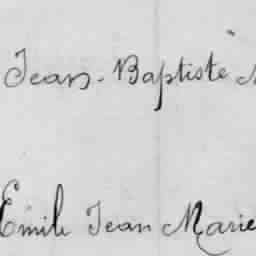 Jean-Baptiste
Emile Jean Marie